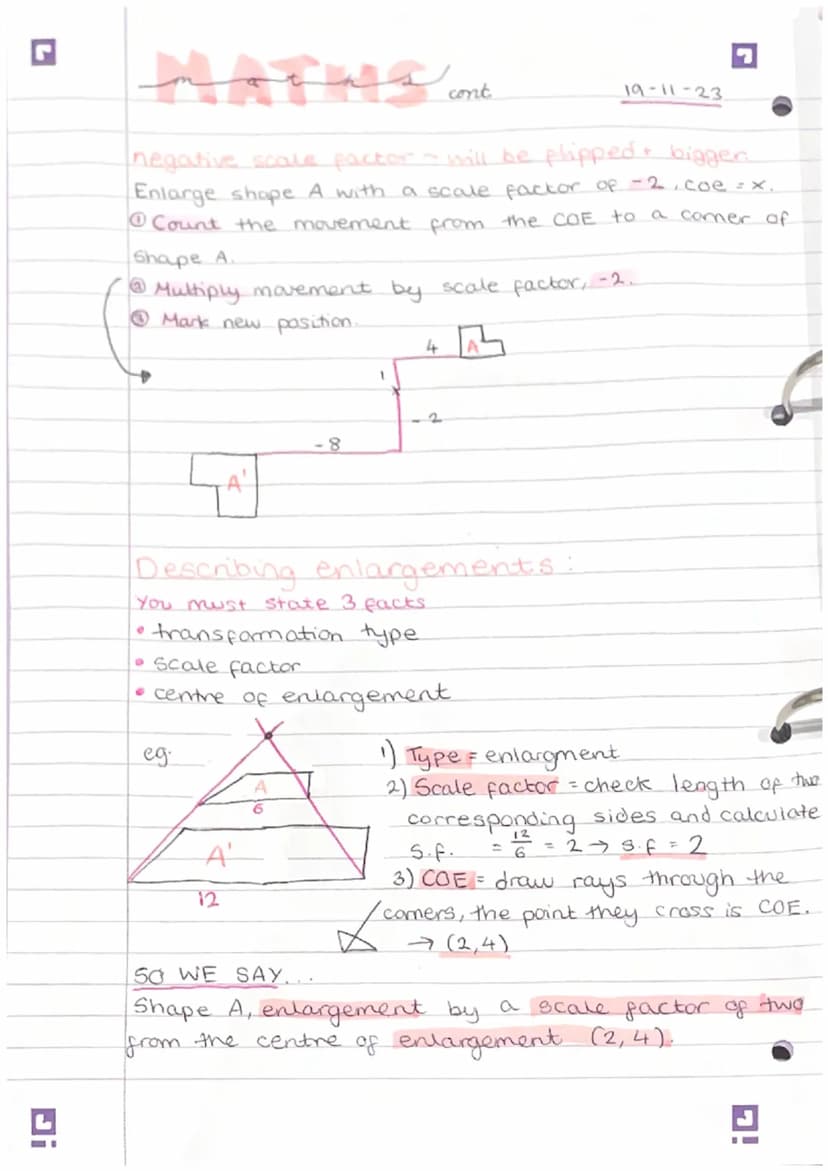 MATHS
maths cont
19-11-23
negative scale factor - will be flipped + bigger
Enlarge shape A with a scale factor of -2, COE = x.
① Count the movement from the COE to a corner of
shape A.
② Multiply movement by scale factor, -2.
③ Mark new position.
4 A
1
-2
-8
A'
Describing enlargements:
You must state 3 facts
• transformation type
• scale factor
• centre of enlargement
eg.
A
6
A'
12
1) Type = enlargment
2) Scale factor = check length of two
corresponding sides and calculate
s.f. = 12/6 = 2 → s.f = 2
3) COE = draw rays through the
corners, the point they cross is COE.
→ (2,4)
SO WE SAY...
Shape A, enlargement by a scale factor of two
from the centre of enlargement (2,4).